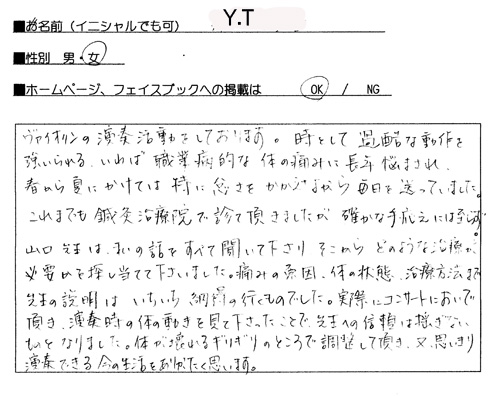 ■お名前(イニシャルでも可) Y.T
■性別 男・女
■ホームページ、フェイスブックへの掲載は OK / NG
ヴァイオリンの演奏活動をしております。時として過酷な動作を
強いられる、いわば職業病的な体の痛みに長年悩まされ、
春から夏にかけては特に怠さをかかえながら毎日を送っていました。
これまでも鍼灸治療院で診て頂きましたが確かな手応えには至らず
山口先生は、私の話をすべて聞いて下さり そこから どのような治療が
必要かを探し当てて下さいました。痛みの原因、体の状態、治療方法まで
先生の説明は いちいち 納得の行くものでした。実際にコンサートにおいで
頂き、演奏時の体の動きを見て下さったことで、先生への信頼は揺ぎない
ものとなりました。体が壊れるギリギリのところで調整して頂き、又、思いきり
演奏できる今の生活をありがたく思います。